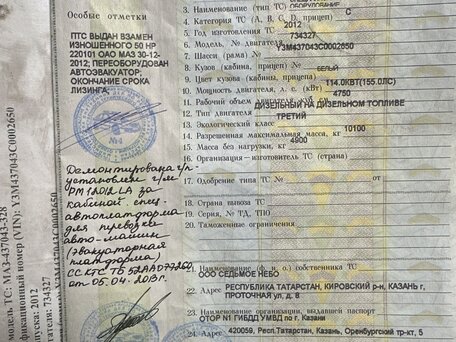 Особые отметки
ПТС ВЫДАН ВЗАМЕН
ИЗНОШЕННОГО 50 НР
220101 ОАО МАЗ 30-12-
2012; ПЕРЕОБОРУДОВАН
АВТОЭВАКУАТОР;
ОКОНЧАНИЕ СРОКА
ЛИЗИНГА;
№1
Демонтирована
установлен г/м
за
кабиной спец.
автоплатформа
для перевозки
авто-машин
(эвакуаторная
платформа)
от 05.04.2013г.
модель ТС: МАЗ-437043-328
фикационный номер (VIN): Y3M437043C0002650
пуска: 2012
игателя: 734327
3. Наименование (тип ТС)
4. Категория ТС (A, B, C, D, прицеп) С
5. Год изготовления ТС 2012
6. Модель, № двигателя 734327
7. Шасси (рама) № Y3M437043C0002650
8. Кузов (кабина, прицеп) №
9. Цвет кузова (кабины, прицепа) БЕЛЫЙ
10. Мощность двигателя, л. с. (кВт) 114.0КВТ(155.0ЛС)
11. Рабочий объем двигателя, 4750
12. Тип двигателя ДИЗЕЛЬНЫЙ НА ДИЗЕЛЬНОМ ТОПЛИВЕ
13. Экологический класс ТРЕТИЙ
14. Разрешенная максимальная масса, кг 10100
15. Масса без нагрузки, кг 4900
16. Организация-изготовитель ТС (страна)
17. Одобрение типа ТС №
18. Страна вывоза ТС
19. Серия, № ТД, ТПО
20. Таможенные ограничения
21. (ф. и. о.) собственника ТС
ООО СЕДЬМОЕ НЕБО
22. Адрес РЕСПУБЛИКА ТАТАРСТАН, КИРОВСКИЙ р-н, КАЗАНЬ г,
ПРОТОЧНАЯ ул, д. 8
23. Наименование организации, выдавшей паспорт
ОТОР N1 ГИБДД УМВД по г. Казани
24. Адрес 420059, Респ.Татарстан, Казань, Оренбургский тр-кт, 5